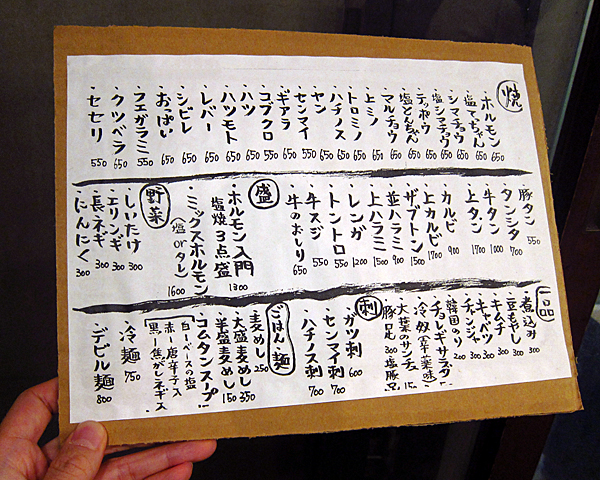 焼
・ホルモン 650
・塩てっちゃん 650
・シマチョウ 650
・塩シマチョウ 650
・テッポウ 650
・塩どんちゃん 650
・マルチョウ 650
・上ミノ 650
・トロミノ 650
・ハチノス 650
・ヤン 550
・センマイ 550
・ギアラ 650
・コブクロ 550
・ハツ 650
・ハツモト 650
・レバー 650
・シビレ 650
・おっぱい 650
・フエガラミ 550
・クツベラ 650
・セセリ 550
豚タン 550
タンシタ 700
・牛タン 1000
・上タン 1700
・カルビ 900
・上カルビ 1700
・ザブトン 1500
・並ハラミ 900
・上ハラミ 1500
・レンガ 1200
・トントロ 550
・牛スジ 550
・牛のおしり 650
盛
・ホルモン入門
塩焼3点盛 1300
・ミックスホルモン
(塩orタレ) 1600
野菜
・しいたけ 300
・エリンギ 300
・長ネギ 300
・にんにく 300
一品
・煮込み 300
・豆もやし 300
・キムチ 300
・キャベツ 300
・チャンジャ 300
・韓国のり 200
・チョレギサラダ
・冷奴(辛薬味)
・大葉のサンチュ 150
・豚足 300 塩豚足
刺
・ガツ刺 600
・センマイ刺 700
・ハチノス刺 700
ごはん・麺
・麦めし 250
・大盛麦めし 350
・半盛麦めし 150
・コムタンスープ!!
白ーベースの塩
赤ー唐辛子入
黒ー焦がしネギ入
・冷麺 750
・デビル麺 800